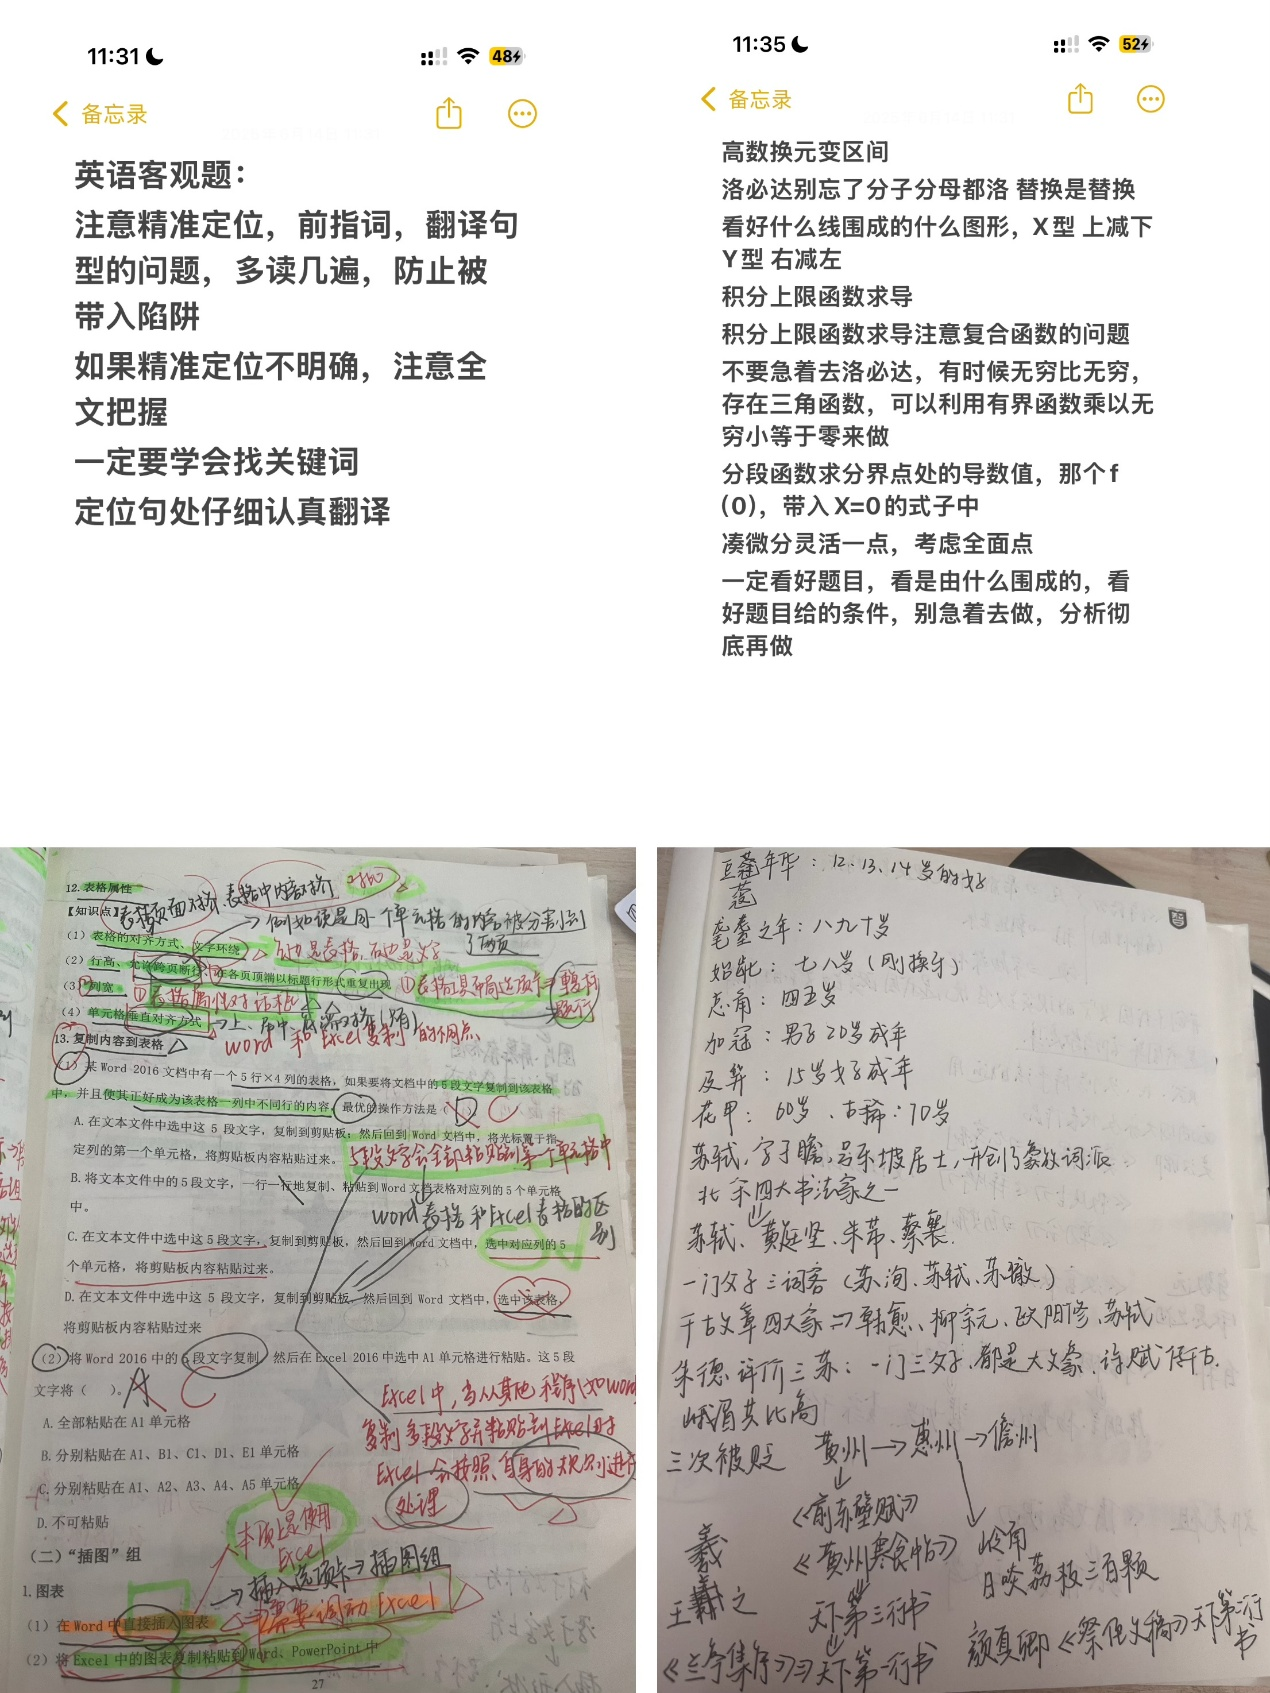 11:31
48
备忘录
英语客观题：
注意精准定位，前指词，翻译句
型的问题，多读几遍，防止被
带入陷阱
如果精准定位不明确，注意全
文把握
一定要学会找关键词
定位句处仔细认真翻译
11:35
52
备忘录
高数换元变区间
洛必达别忘了分子分母都洛 替换是替换
看好什么线围成的什么图形，X型 上减下
Y型 右减左
积分上限函数求导
积分上限函数求导注意复合函数的问题
不要急着去洛必达，有时候无穷比无穷，
存在三角函数，可以利用有界函数乘以无
穷小等于零来做
分段函数求分界点处的导数值，那个f
(0)，带入X=0的式子中
凑微分灵活一点，考虑全面点
一定看好题目，看是由什么围成的，看
好题目给的条件，别急着去做，分析彻
底再做
12.表格属性
表格页面对齐、表格中内容对齐
【知识点】
→例如说是同一个单元格的内容被分割到
了两页
（1）表格的对齐方式、文字环绕
旁边是表格，右边是文字
（2）行高、允许跨页断行、在各页顶端以标题行形式重复出现
（3）列宽
①表格属性对话框
（4）单元格垂直对齐方式
→上、居中、底端对齐
word 和 Excel 复制的不同点
13.复制内容到表格
（1）某 Word 2016 文档中有一个 5 行×4 列的表格，如果要将文档中的 5 段文字复制到该表格
中，并且使其正好成为该表格一列中不同行的内容，最优的操作方法是（ ） D C
A.在文本文件中选中这 5 段文字，复制到剪贴板，然后回到 Word 文档中，将光标置于指
定列的第一个单元格，将剪贴板内容粘贴过来。
5段文字会全部粘贴到第一个单元格中
B.将文本文件中的 5 段文字，一行一行地复制、粘贴到 Word 文档表格对应列的 5 个单元格
中。
word表格和Excel表格的区别
C.在文本文件中选中这 5 段文字，复制到剪贴板，然后回到 Word 文档中，选中对应列的 5
个单元格，将剪贴板内容粘贴过来。
D.在文本文件中选中这 5 段文字，复制到剪贴板，然后回到 Word 文档中，选中该表格，
将剪贴板内容粘贴过来
（2）将 Word 2016 中的 5 段文字复制，然后在 Excel 2016 中选中 A1 单元格进行粘贴。这 5 段
文字将（ ）。A C
Excel中，当从其他程序（如word
复制多段文字并粘贴到Excel时
Excel会按照自身的规则进行
处理
A.全部粘贴在 A1 单元格
B.分别粘贴在 A1、B1、C1、D1、E1 单元格
C.分别粘贴在 A1、A2、A3、A4、A5 单元格
D.不可粘贴
本质上是使用
Excel
（二）“插图”组
→插入选项卡→插图组
1.图表
→需要调动Excel
（1）在 Word 中直接插入图表
（2）将 Excel 中的图表复制粘贴到 Word、PowerPoint 中
27
豆蔻年华：12、13、14岁的女子
蔻
耄耋之年：八九十岁
始龀：七八岁（刚换牙）
总角：四五岁
加冠：男子20岁成年
及笄：15岁女子成年
花甲：60岁、古稀：70岁
苏轼，字子瞻，号东坡居士，开创了豪放词派
北宋四大书法家之一
苏轼、黄庭坚、米芾、蔡襄.
一门父子三词客（苏洵、苏轼、苏辙）
千古文章四大家⇒韩愈、柳宗元、欧阳修、苏轼
朱德评价三苏：一门三父子，都是大文豪，诗赋传千古，
峨眉共比高
三次被贬 黄州→惠州→儋州
《前赤壁赋》
《黄州寒食帖》 岭南
日啖荔枝三百颗
羲
王羲之 天下第三行书
颜真卿《祭侄文稿》天下第二行书
《兰亭集序》⇒天下第一行书